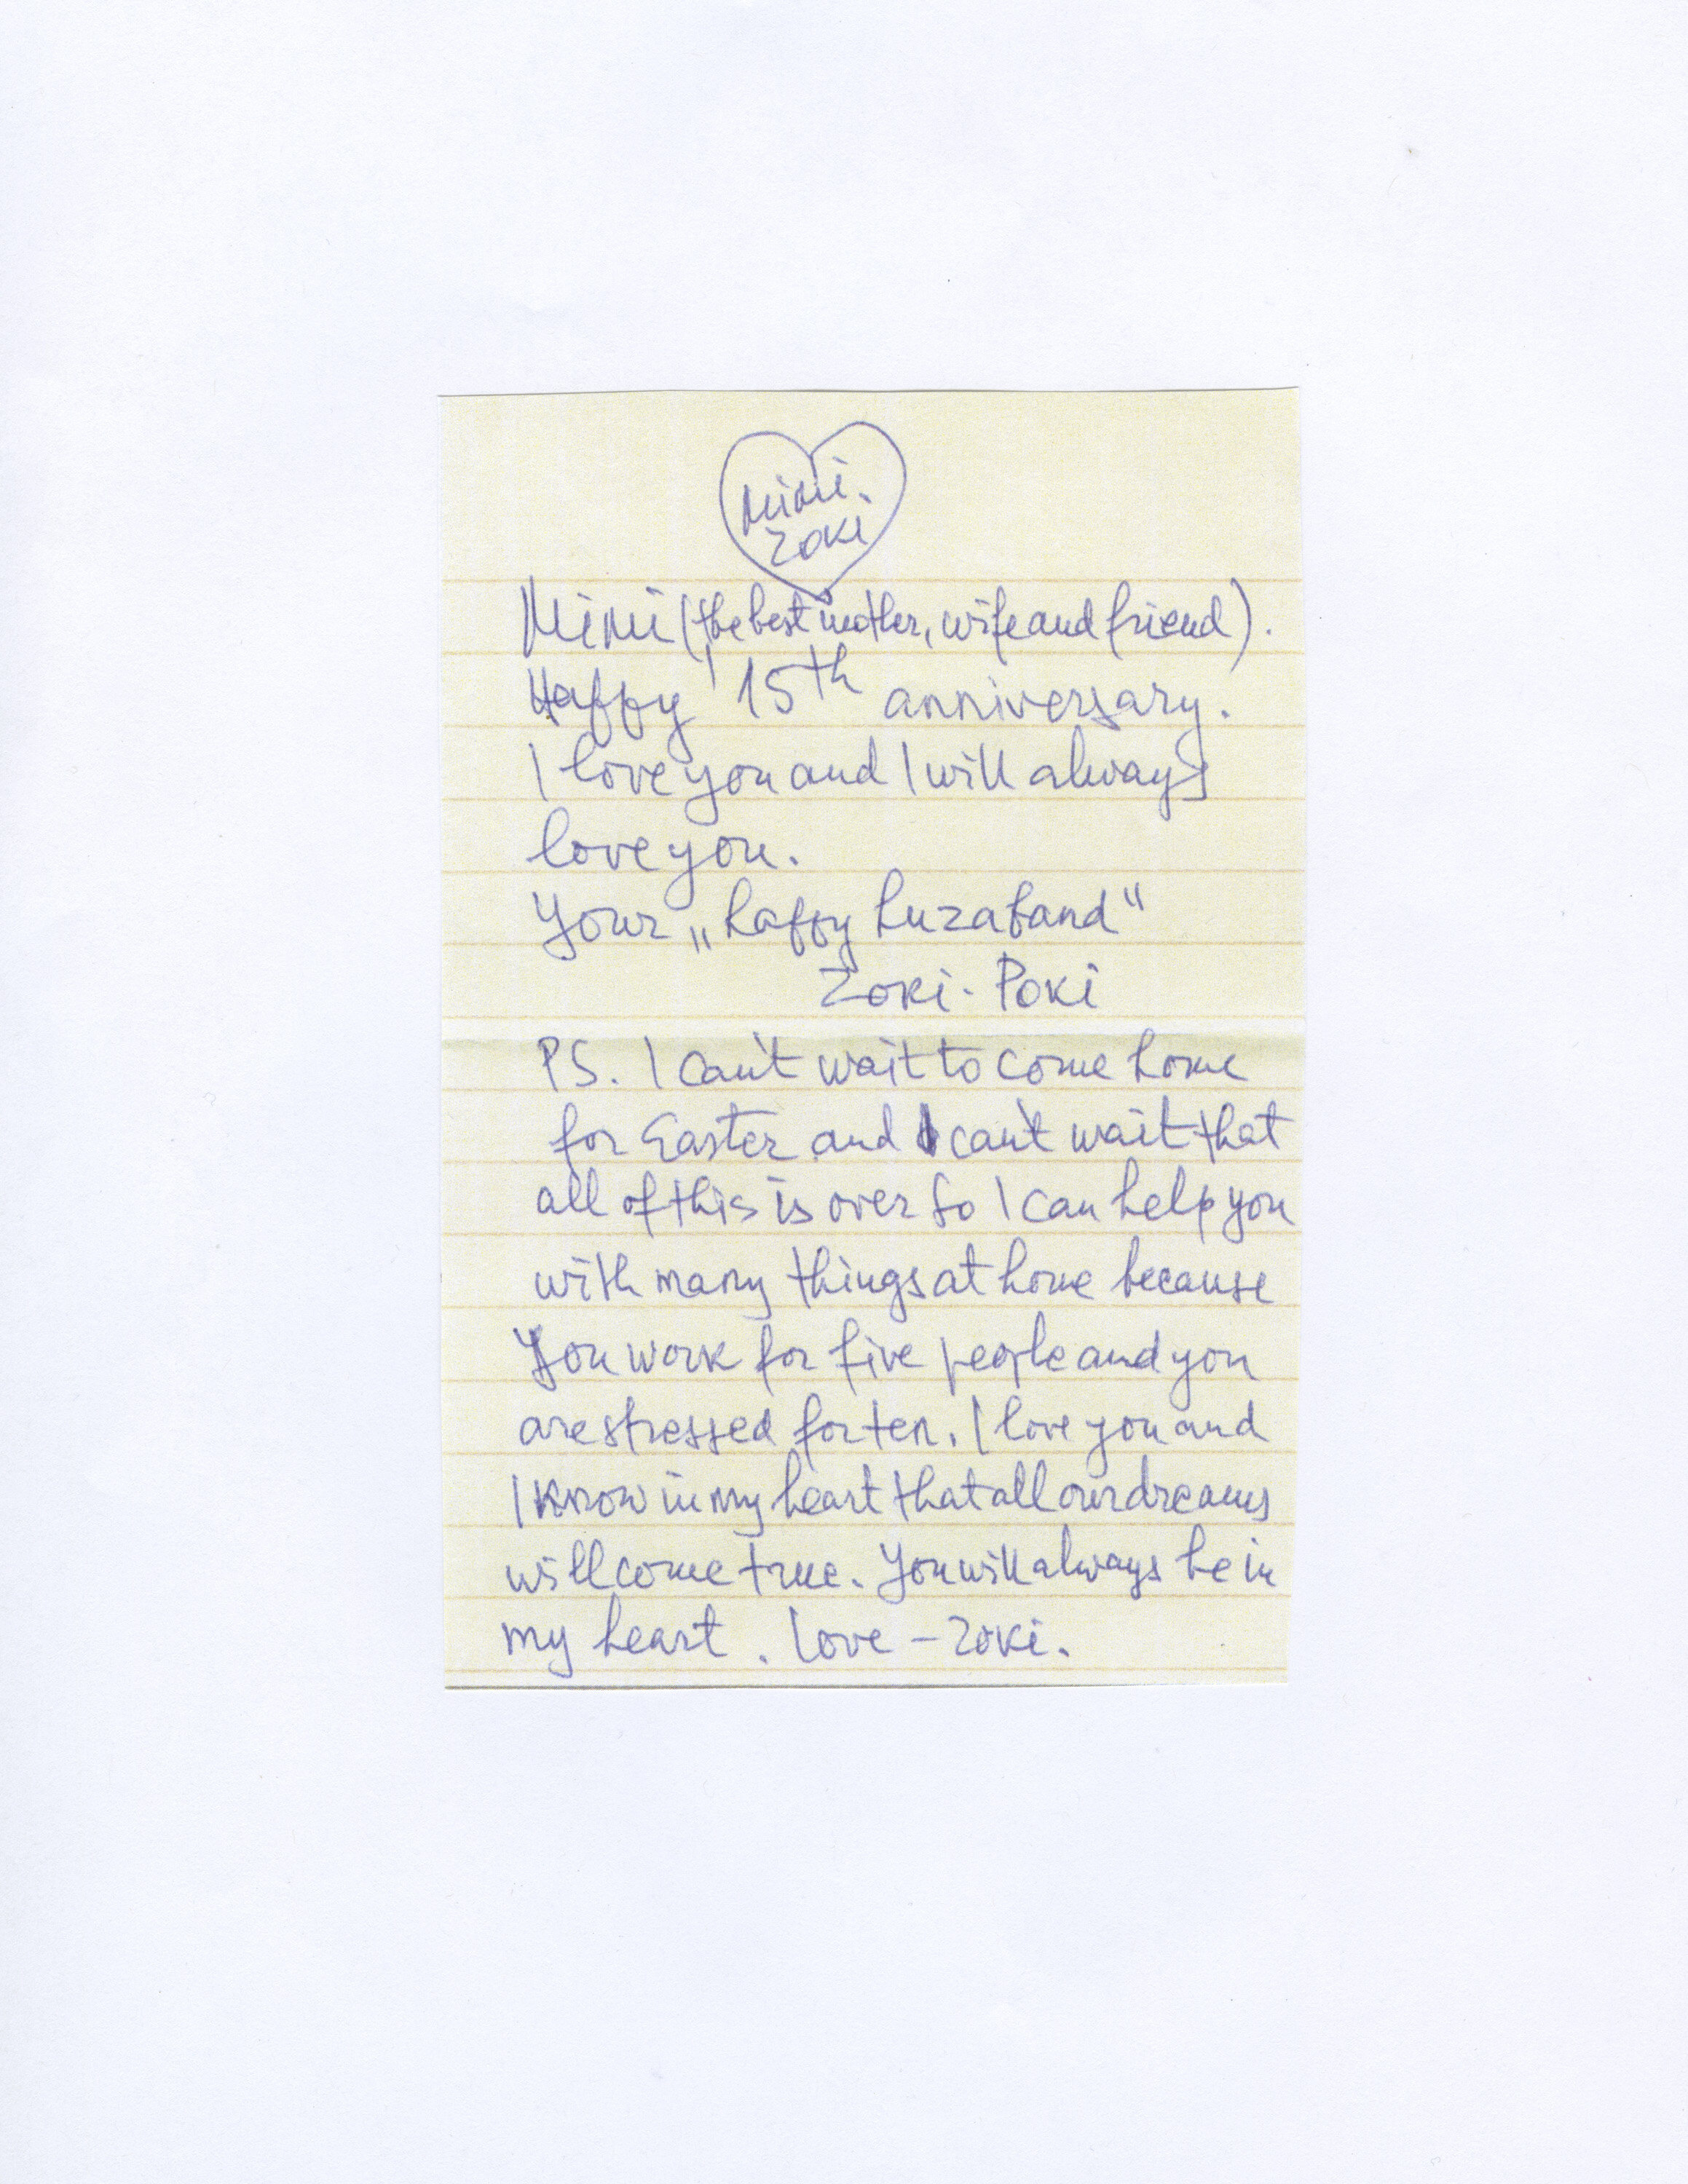 Mimi.
Zoki
Mimi (the best mother, wife and friend).
Happy 15th anniversary.
I love you and I will always
love you.
Your „happy huzaband"
Zoki - Poki
PS. I can't wait to come home
for Easter and I can't wait that
all of this is over so I can help you
with many things at home because
you work for five people and you
are stressed for ten. I love you and
I know in my heart that all our dreams
will come true. You will always be in
my heart. Love - Zoki.